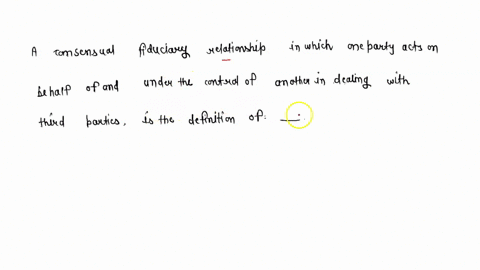 A consensual fiduciary relationship in which one party acts on
behalf of and under the control of another in dealing with
third parties, is the definition of: __.